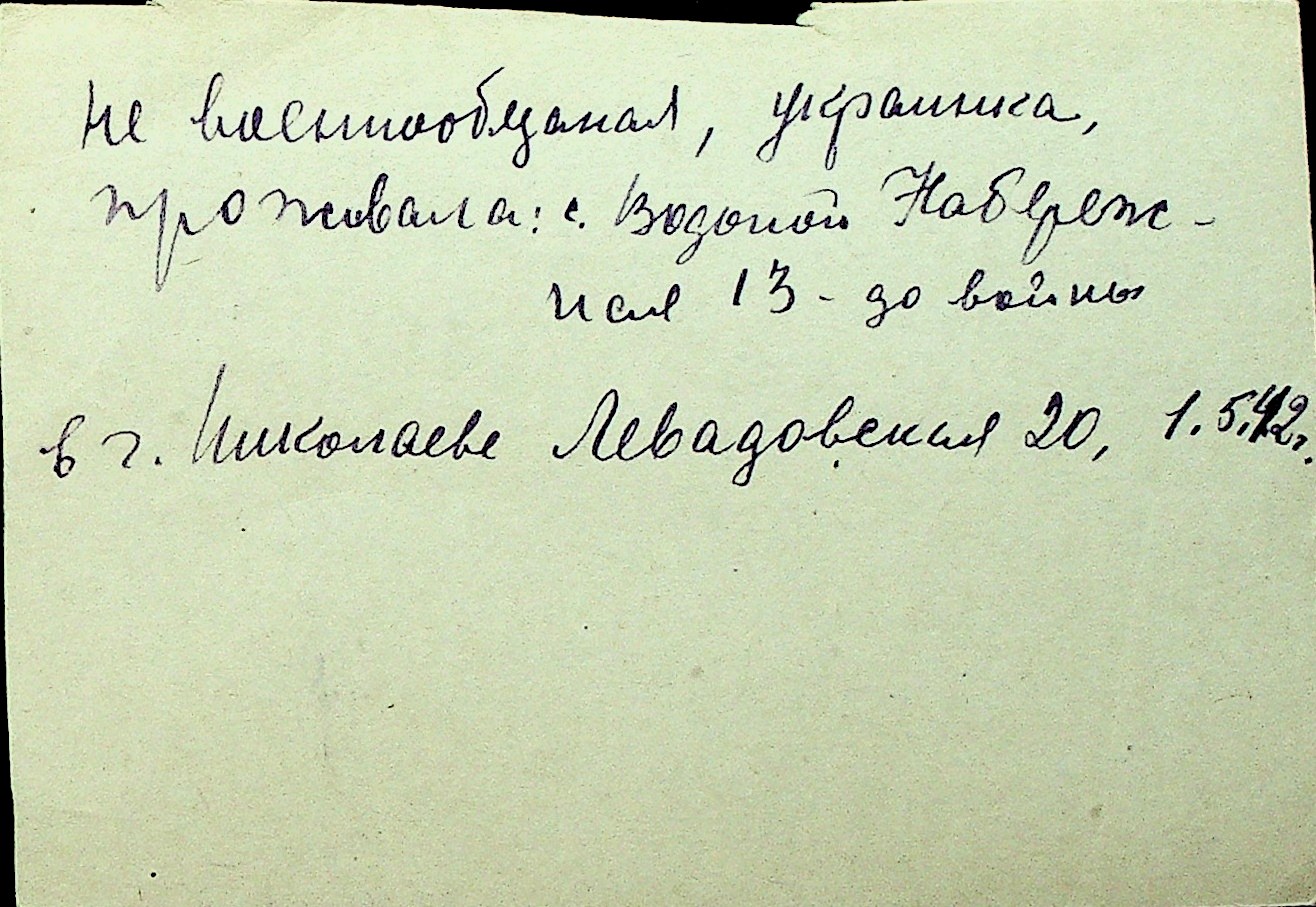 не военнообязаная, украинка,
проживала: с. Водопой Набереж-
ная 13 - до войны
в г. Николаеве Левадовская 20, 1.5.42г.